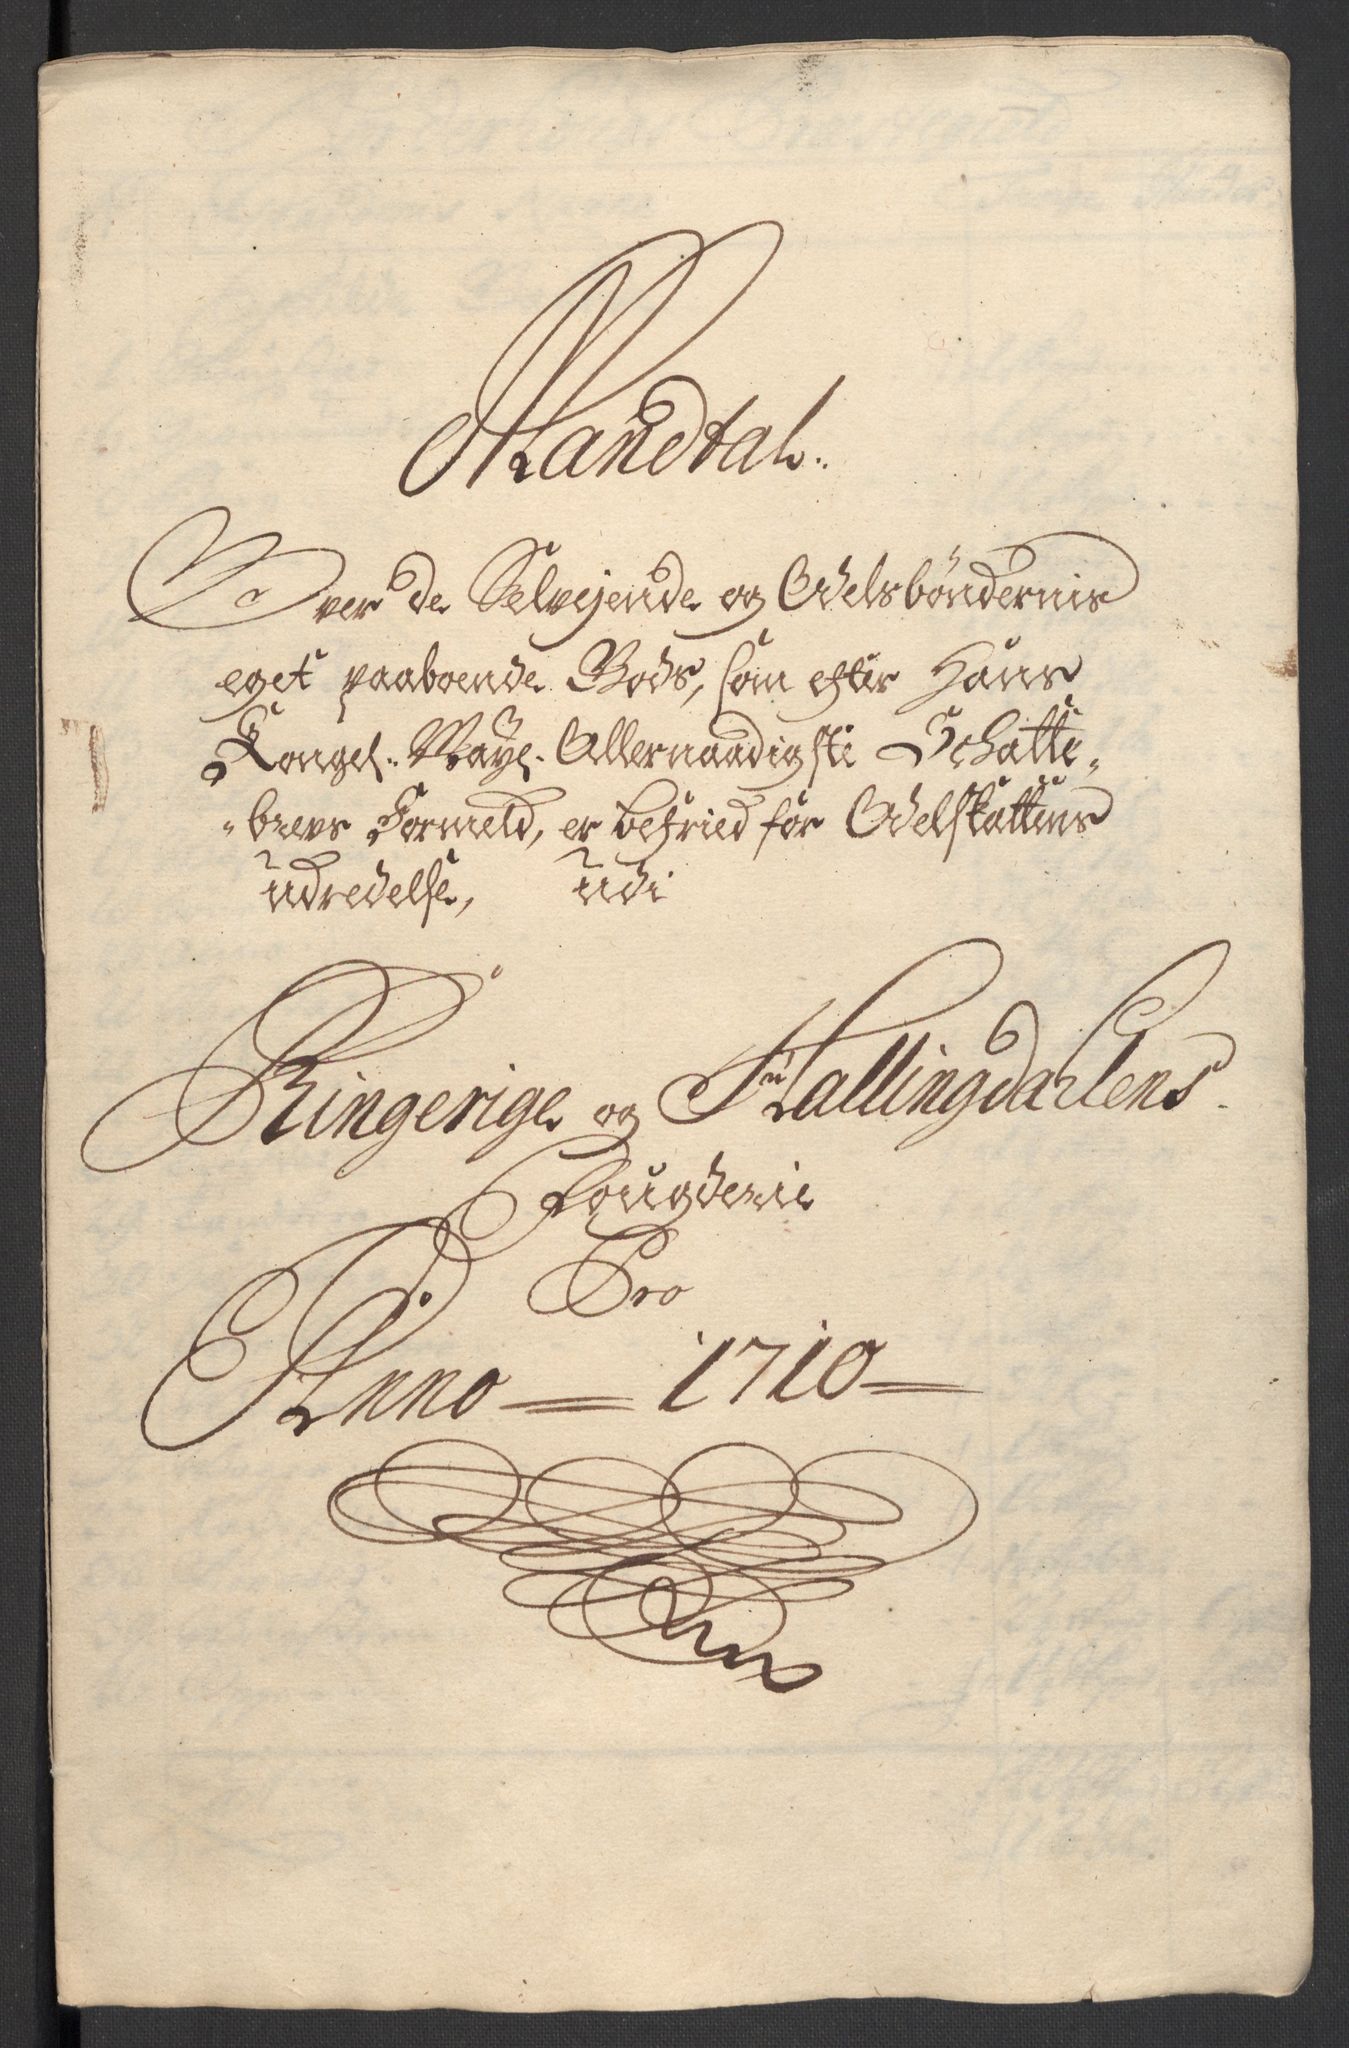 Mandtal.
Over de Selvejende og Odelsbøndernis
eget paaboende Gods, som efter Hans
Kongel. Mayt. Allernaadigste Schatte-
-brevs Formeld, er befried for Odelskattens
udredelse, udi
Ringerige og Hallingdahlens
Fougderie
Pro
Anno 1710